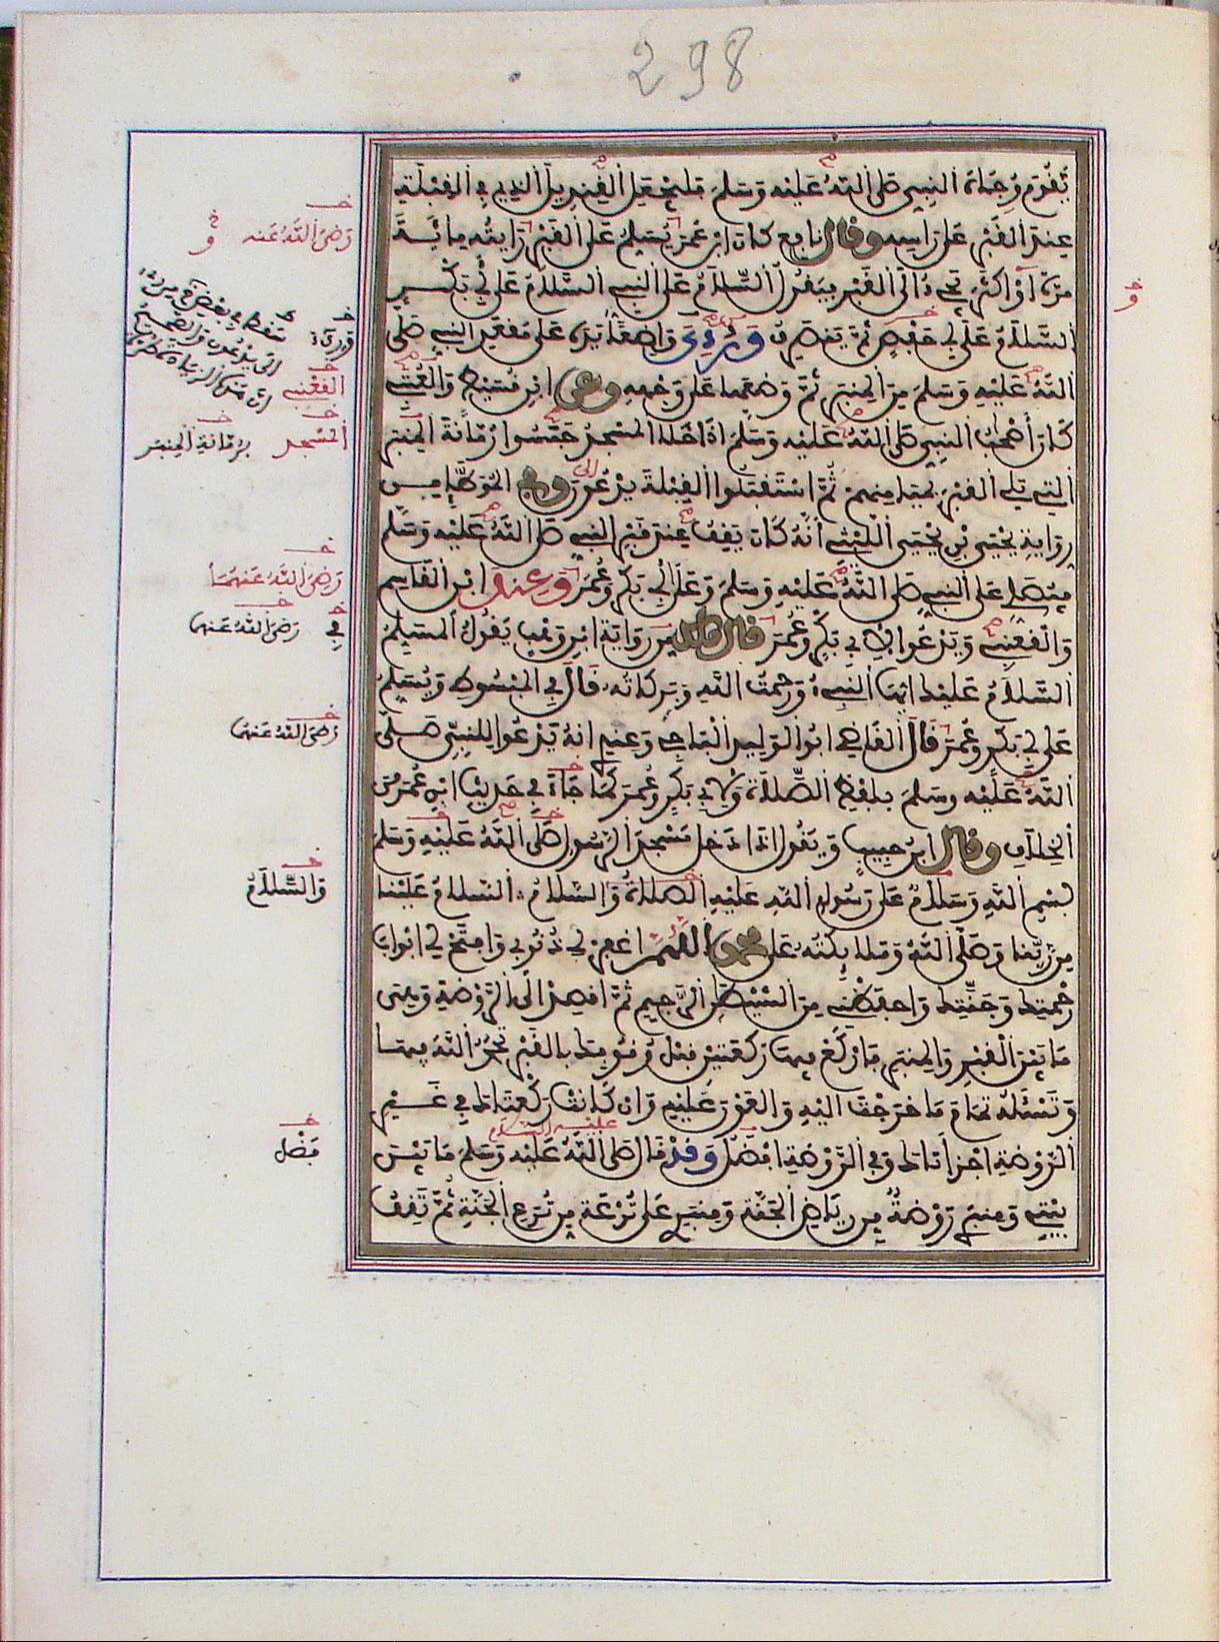 298
يقوم وجاه النبي صلى الله عليه وسلم فليجعل القنديل الذي في القبلة
عند القبر على راسه وقال نافع كان ابن عمر يسلم على القبر رايته مائة
مرة او اكثر يجيء الى القبر فيقول السلام على النبي السلام على ابي بكر
السلام على ابي حفص ثم ينصرف وروي واضعا يده على مقعد النبي صلى
الله عليه وسلم من المنبر ثم وضعها على وجهه وعن ابن قسيط والعتبي
كان اصحب النبي صلى الله عليه وسلم اذا خلا المسجد جسوا رمانة المنبر
التي تلي القبر بميامنهم ثم استقبلوا القبلة يدعون وفي الموطإ من
رواية يحيى بن يحيى الليثي انه كان يقف عند قبر النبي صلى الله عليه وسلم
فيصلي على النبي صلى الله عليه وسلم وعلى ابي بكر وعمر وعند ابن القاسم
والقعنبي ويدعوا لابي بكر وعمر قال ملك من رواية ابن وهب يقول المسلم
السلام عليك ايها النبي ورحمت الله وبركاته قال في المبسوط ويسلم
على ابي بكر وعمر قال القاضي ابو الوليد الباجي وعندي انه يدعوا للنبي صلى
الله عليه وسلم بلفظ الصلاة ولابي بكر وعمر كما جاء في حديث ابن عمر من
الخلاف وقال ابن حبيب ويقول اذا دخل مسجد الرسول صلى الله عليه وسلم
بسم الله وسلام على رسول الله عليه الصلاة والسلام السلام علينا
من ربنا وصلى الله وملائكته على محمد اللهم اغفر لي ذنوبي وافتح لي ابواب
رحمتك وجنتك واحفظني من الشيطن الرجيم ثم اقصد الى الروضة وهي
ما بين القبر والمنبر فاركع فيها ركعتين قبل وقوفك بالقبر تحمد الله فيهما
وتسئله تمام ما خرجت اليه والعون عليه وان كانت ركعتاك في غير
الروضة اجزاتاك وفي الروضة افضل وقد قال صلى الله عليه وسلم ما بين
عليه السلام
بيتي ومنبري روضة من رياض الجنة ومنبري على ترعة من ترع الجنة ثم تقف
رضي الله عنه
القعنبي
المسجد
برمانة المنبر
رضي الله عنهما
في
رضي الله عنهما
رضي الله عنهما
والسلام
فضل